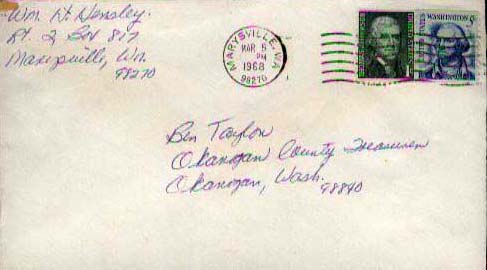 Wm. H. Hensley.
Rt. 2 Box 817
Marysville, Wn.
98270
MARYSVILLE, WA
MAR 5
PM
1968
98270
1¢
WASHINGTON 5¢
Ben Taylor
Okanogan County Treasurer
Okanogan, Wash.
98840